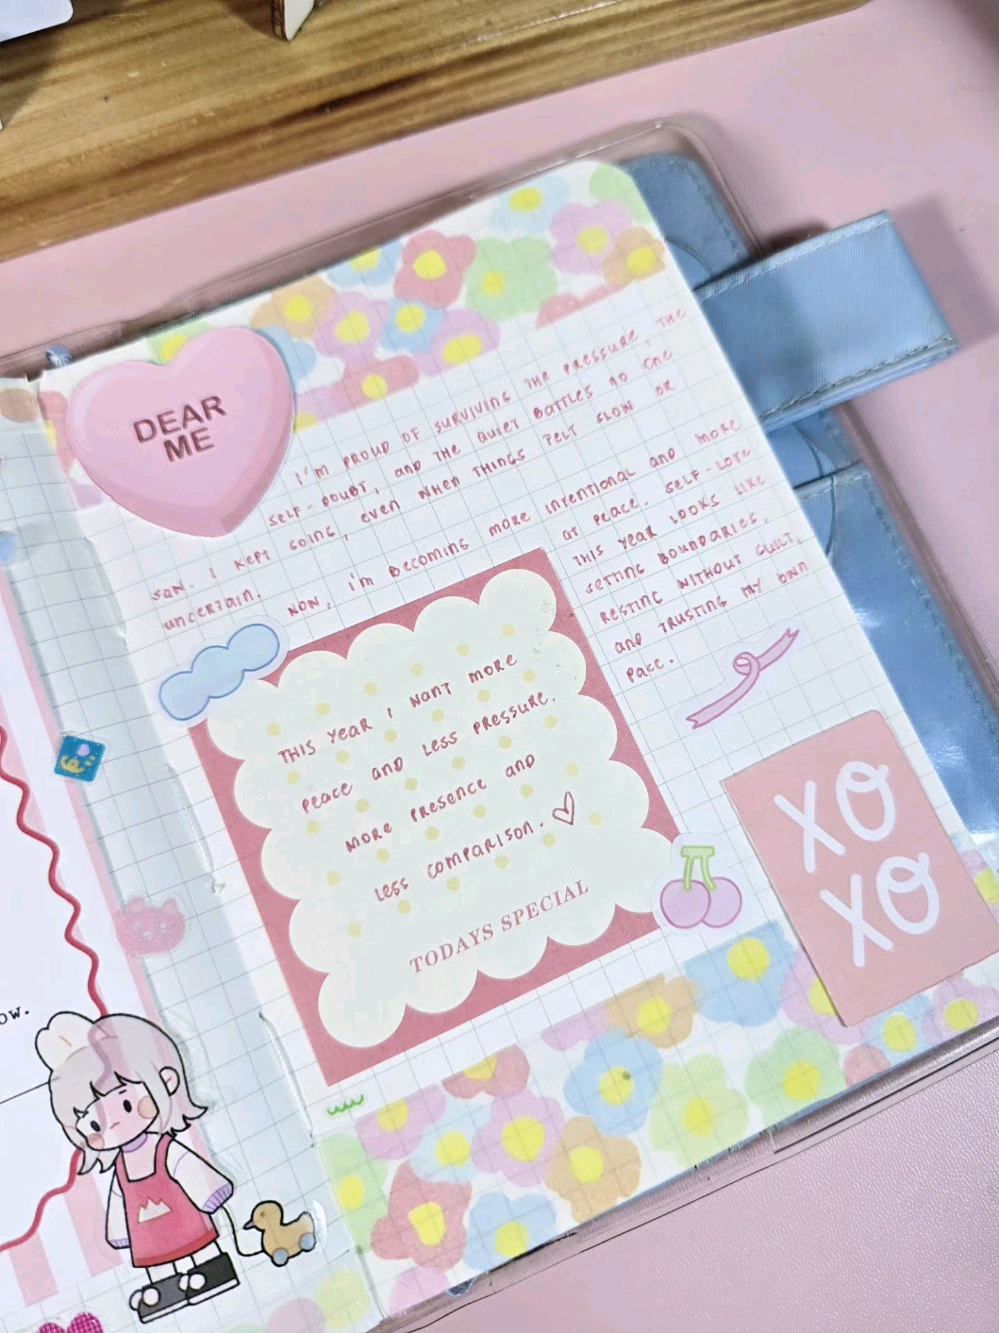 DEAR
ME
I'm PROUD OF SURVIVING THE PRESSURE, THE
SELF-DOUBT, AND THE QUIET BATTLES NO ONE
SAW. I KEPT GOING, EVEN WHEN THINGS FELT SLOW OR
UNCERTAIN. NOW, I'M BECOMING MORE INTENTIONAL AND MORE
AT PEACE. SELF-LOVE
THIS YEAR LOOKS LIKE
SETTING BOUNDARIES,
RESTING WITHOUT GUILT,
AND TRUSTING MY OWN
PACE.
THIS YEAR I WANT MORE
PEACE AND LESS PRESSURE,
MORE PRESENCE AND
LESS COMPARISON.
TODAYS SPECIAL
XO
XO
ow.